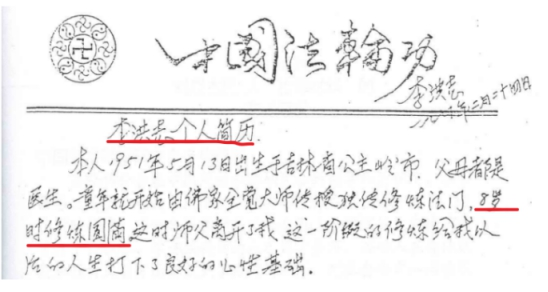 中國法輪功
李洪志
一九九年二月二十四日
李洪志个人简历
本人1951年5月13日出生于吉林省公主岭市.父母都是
医生。童年就开始由佛家全觉大师传授独传修炼法门,8岁
时修炼圆满,这时师父离开了我 这一阶段的修炼给我以
后的人生打下了良好的心性基础.